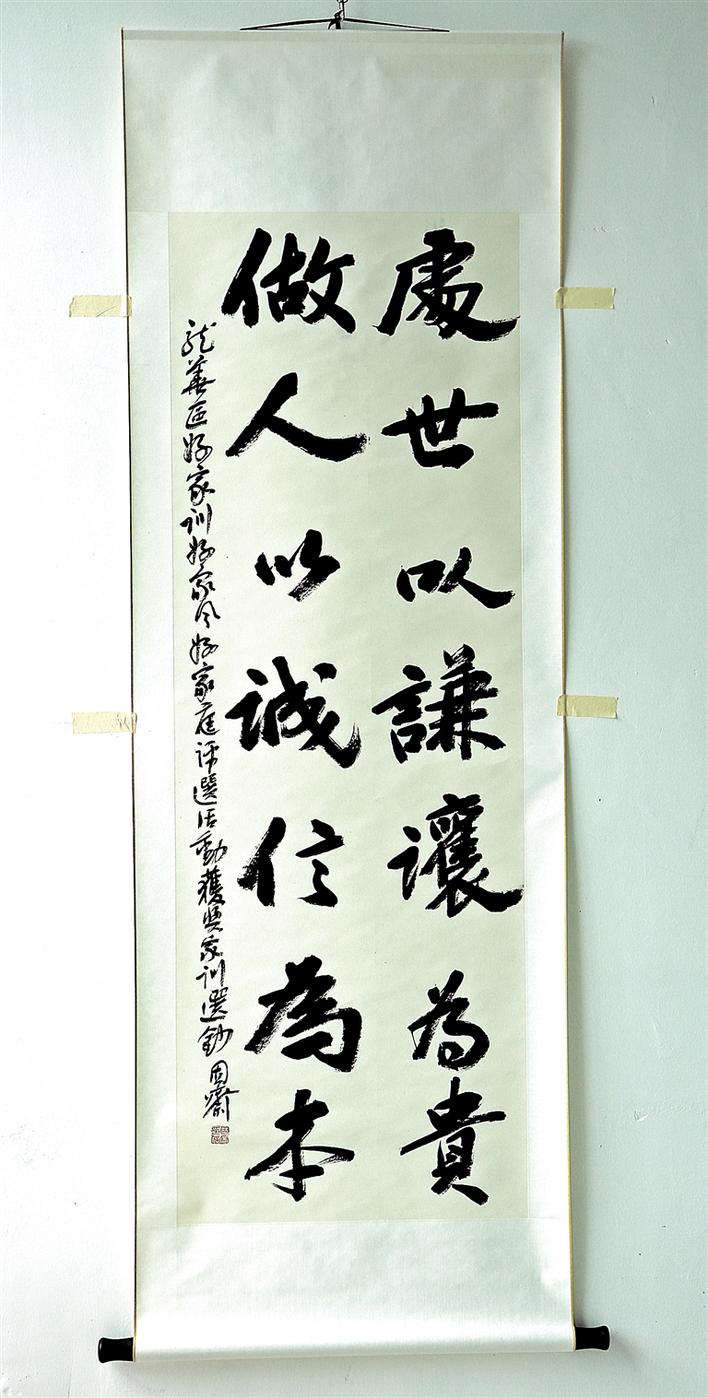 處世以謙讓為貴
做人以誠信為本
龍華區好家训好家风好家庭评選活動獲奖家训選鈔